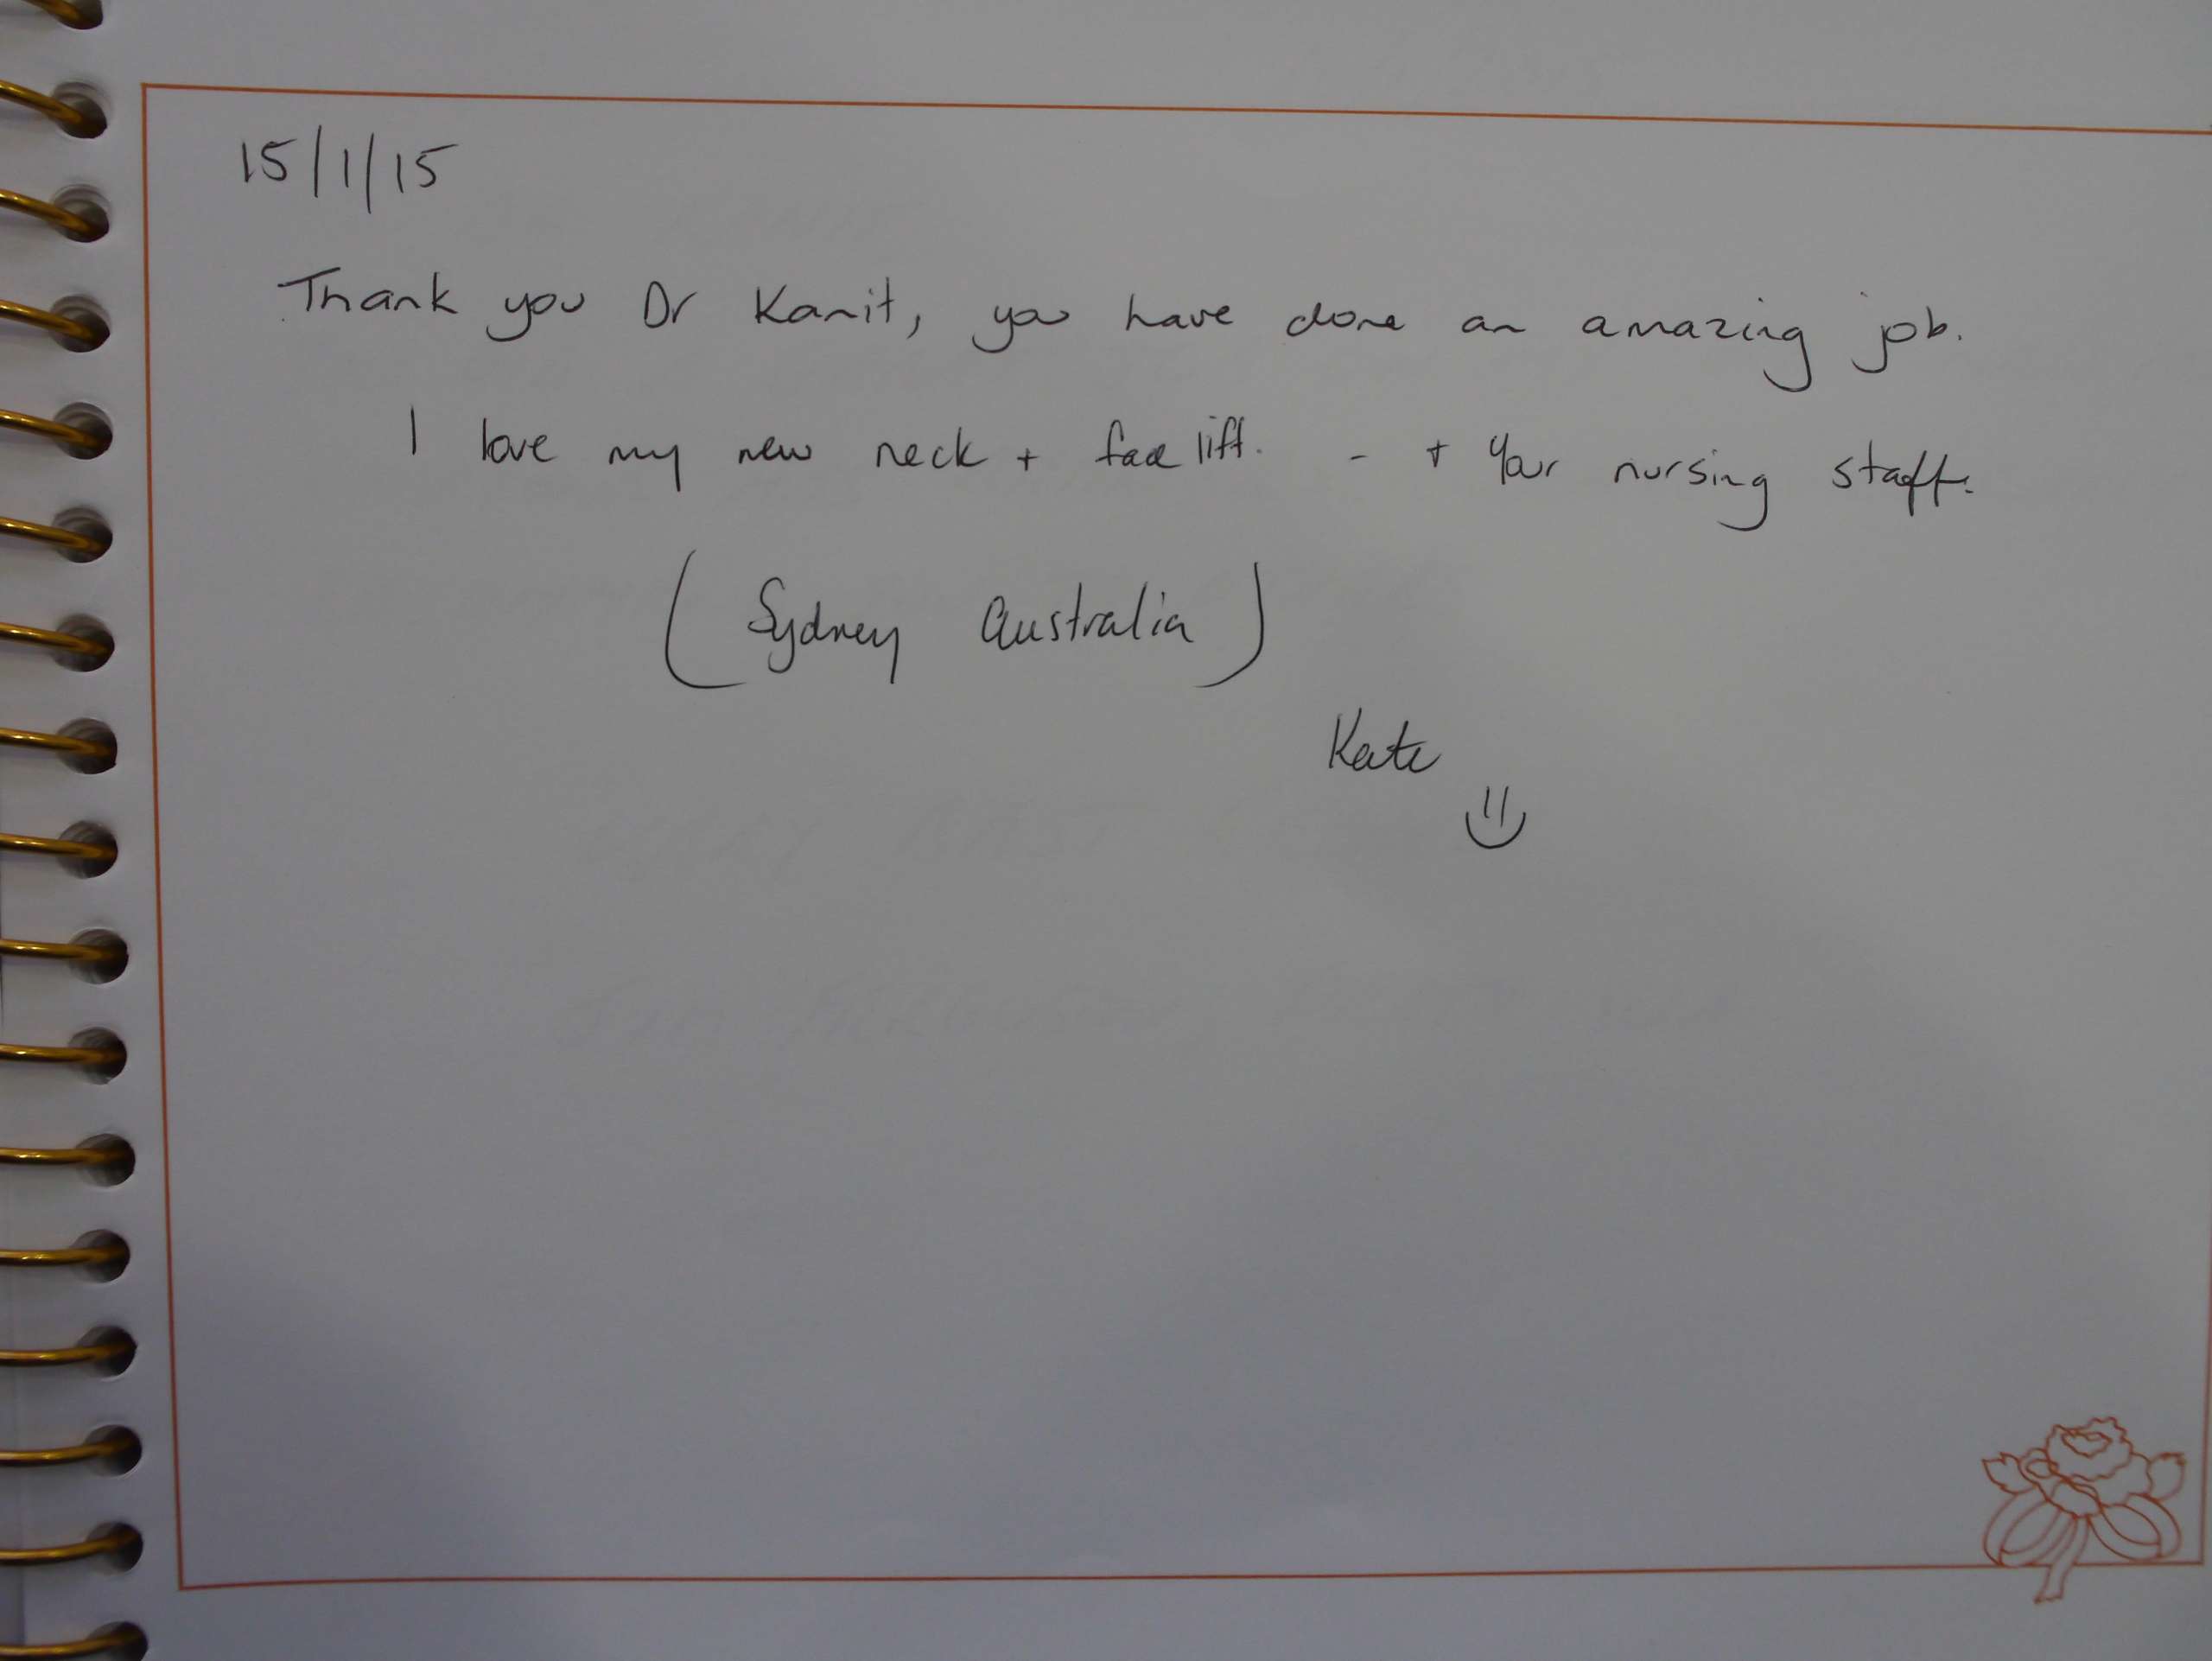 15/1/15
Thank you Dr Kanit, you have done an amazing job.
I love my new neck + face lift. - + Your nursing staff.
(Sydney Australia)
Kate